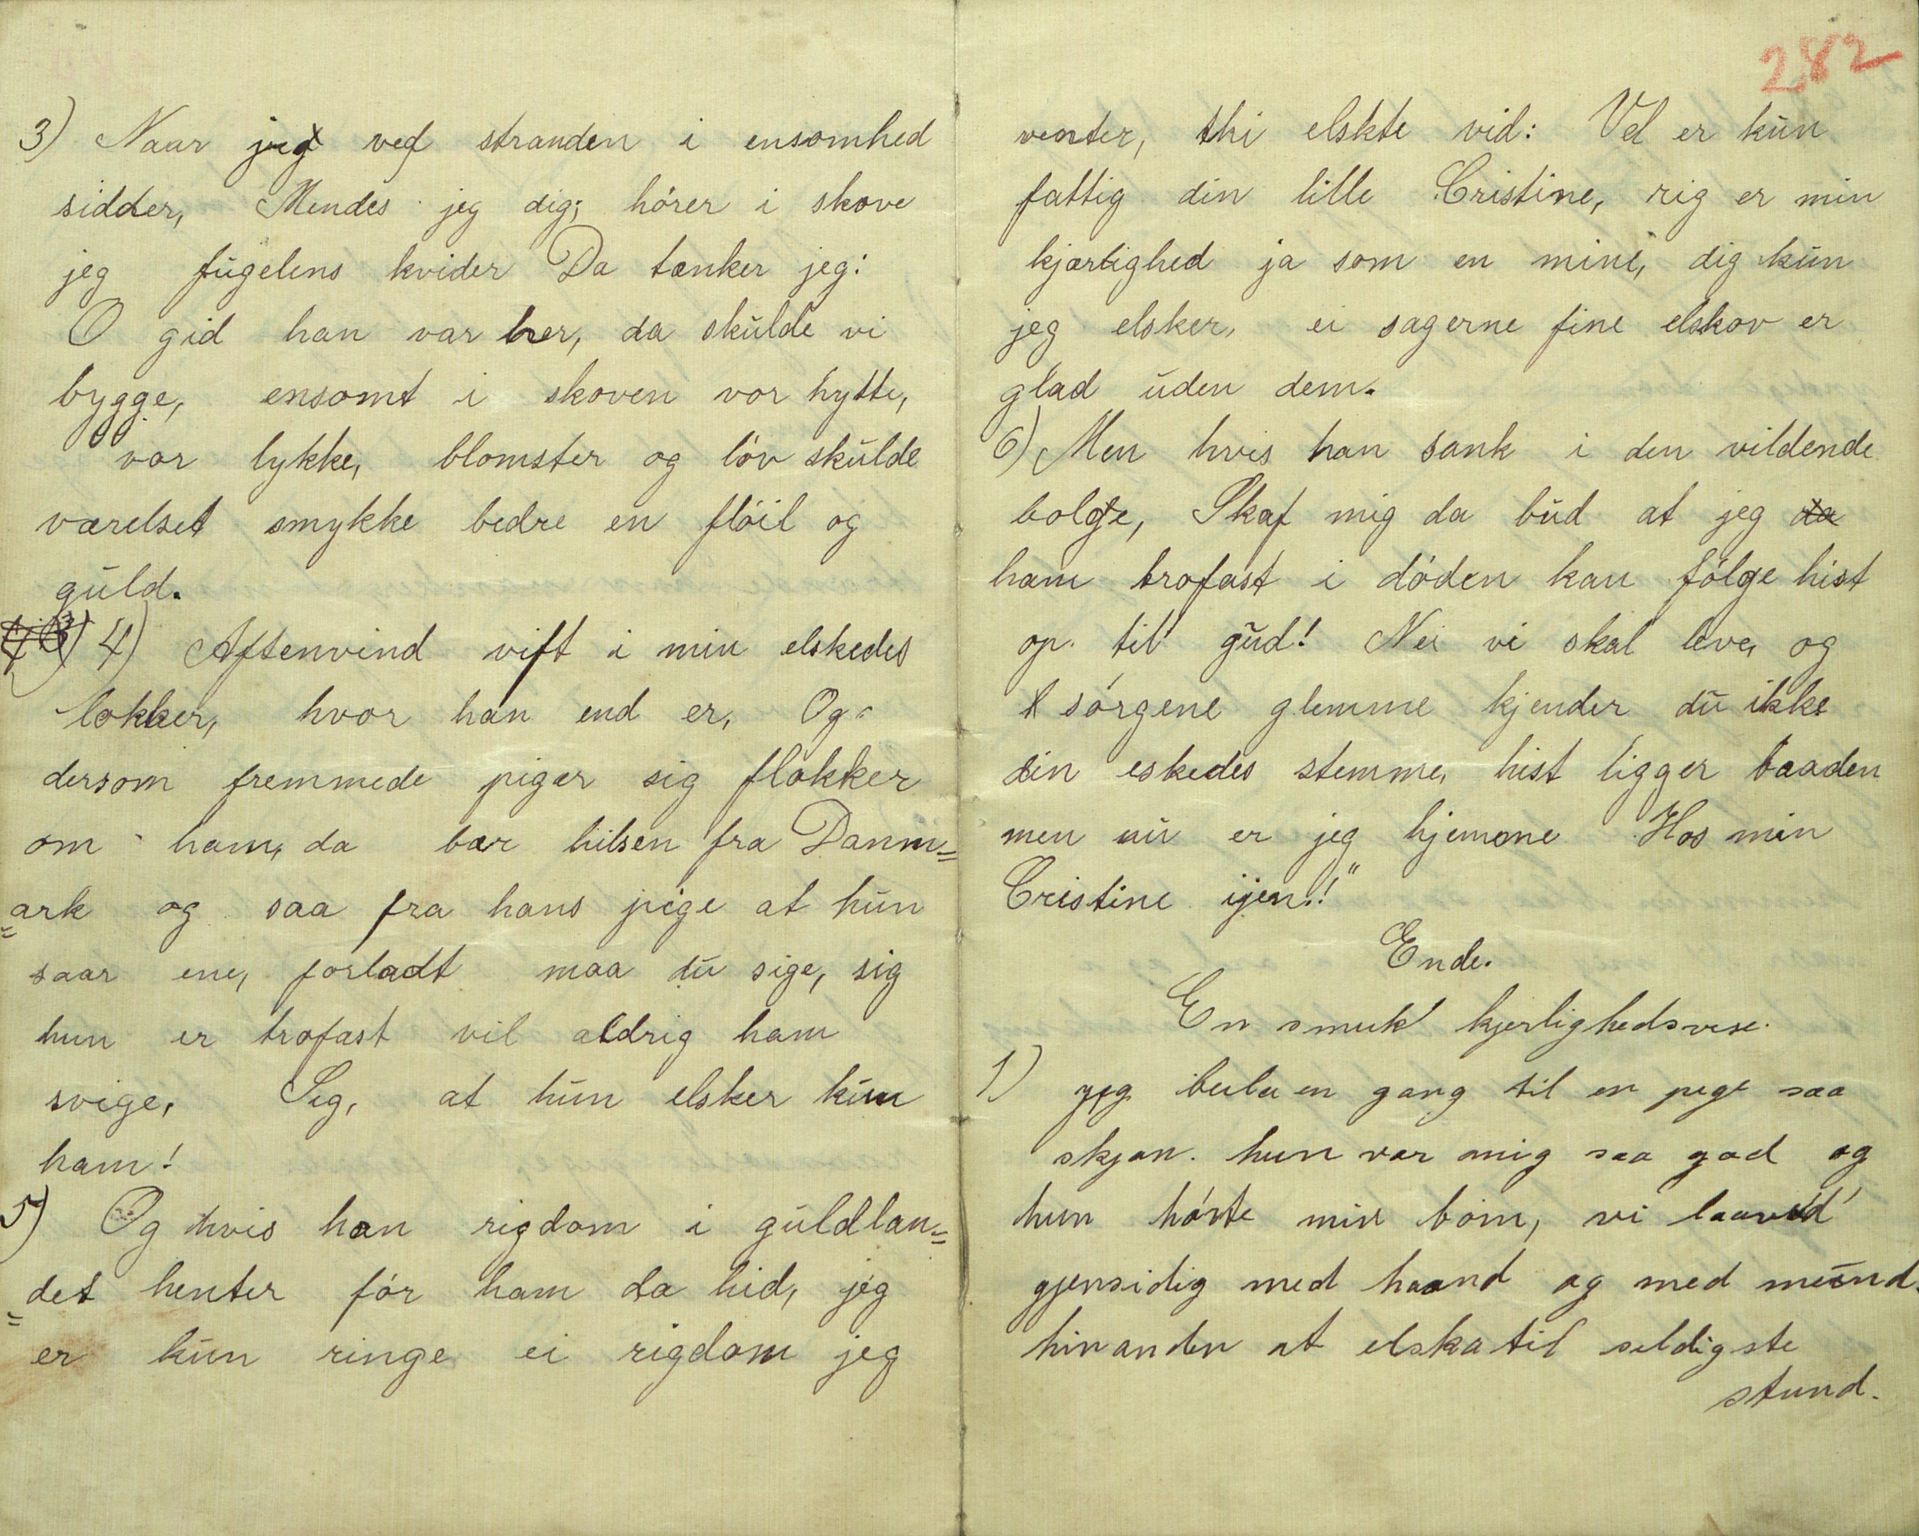 3) Naar jeg ved stranden i ensomhed
sidder, Mendes jeg dig; hörer i skove
jeg fugelens kvider Da tænker jeg:
O gid han var her, da skulde vi
bygge, ensomt i skoven vor hytte,
vor lykke, blomster og löv skulde
værelset smykke bedre en flöil og
guld.
4) Aftenvind vift i min elskedes
lokker, hvor han end er, Og
dersom fremmede piger sig flokker
om ham, da bær hilsen fra Danm=
=ark og saa fra hans pige at hun
saar ene, forladt maa du sige, sig
hun er trofast vil aldrig ham
svige, Sig, at hun elsker kun
ham!
5) Og hvis han rigdom i guldlan=
=det henter för ham da hid, jeg
er kun ringe ei rigdom jeg
282
venter, thi elskte vid: Vel er kun
fattig din lille Cristine, rig er min
kjærlighed ja som en mine, dig kun
jeg elsker, ei sagerne fine elskov er
glad uden dem.
6) Men hvis han sank i den vildende
bolge, Skaf mig da bud at jeg da
ham trofast i döden kan fölge hist
op til gud! Nei vi skal leve, og
sörgene glemme kjender du ikke
din eskedes stemme, hist ligger baaden
men nu er jeg hjemme Hos min
Cristine ijen!!"
Ende.
En smuk kjerlighedsvise.
1) jeg beilu en gang til en pige saa
skjøn. hun var mig saa god og
hun hörte min bön, vi laaved
gjensidig med haand og med mund.
hinanden at elska til seldigste
stund.